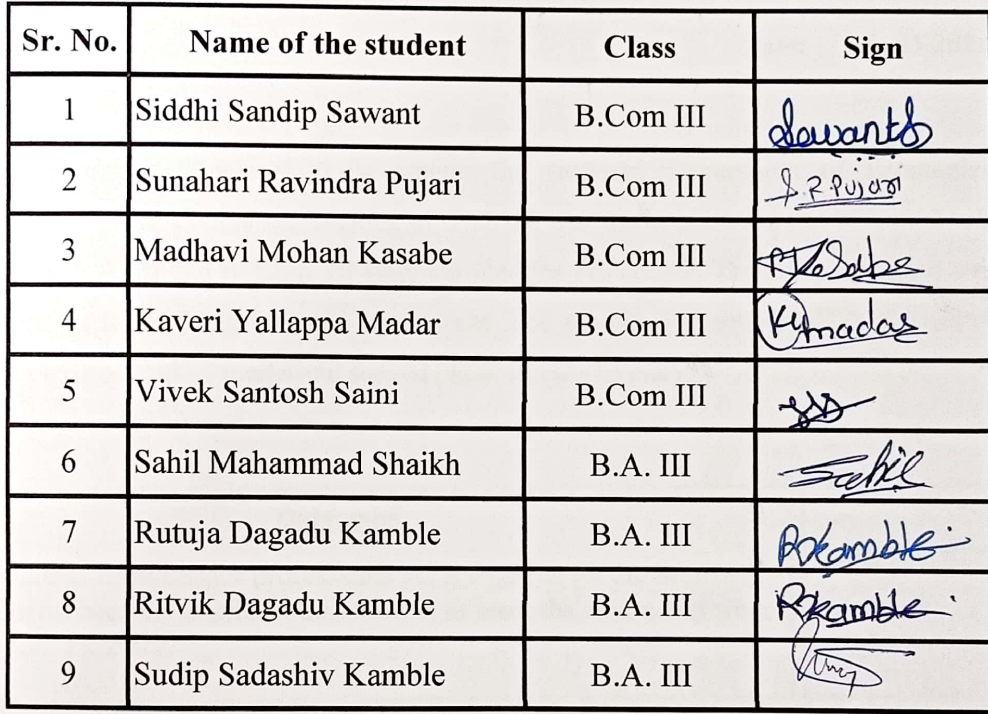 Sr. No. Name of the student Class Sign
1 Siddhi Sandip Sawant B.Com III Sawant
2 Sunahari Ravindra Pujari B.Com III S. R. Pujari
3 Madhavi Mohan Kasabe B.Com III Kasabe
4 Kaveri Yallappa Madar B.Com III Ky madar
5 Vivek Santosh Saini B.Com III
6 Sahil Mahammad Shaikh B.A. III Sahil
7 Rutuja Dagadu Kamble B.A. III RDKamble
8 Ritvik Dagadu Kamble B.A. III RKamble
9 Sudip Sadashiv Kamble B.A. III